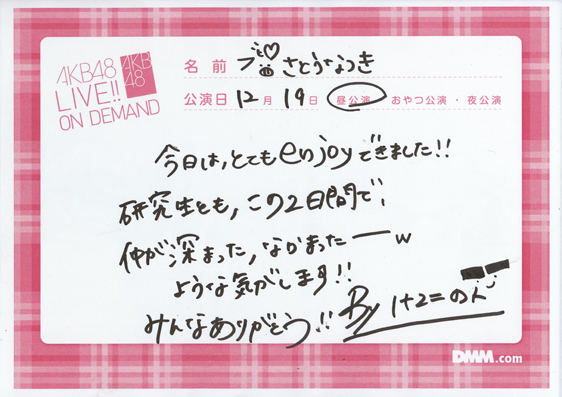 AKB48
LIVE!!
ON DEMAND
AKB
48
名前 さとうなつき
公演日 12月19日 昼公演 おやつ公演・夜公演
今日は、とてもenjoyできました!!
研究生とも、この2日間で、
仲が深まった、なかまったーw
ような気がします!!
みんなありがとう!!
By 1+2=の人
DMM.com